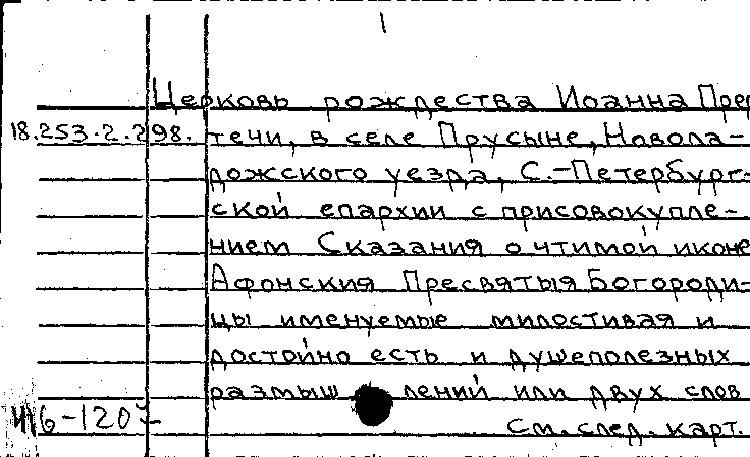 Церковь рождества Иоанна Пред
18.253.2.298. течи, в селе Прусыне, Новола-
дожского уезда, С.-Петербург-
ской епархии с присовокупле-
нием Сказания о чтимой иконе
Афонския Пресвятыя Богороди-
цы именуемые милостивая и
достойно есть и душеполезных
размышлений или двух слов
См. след. карт.